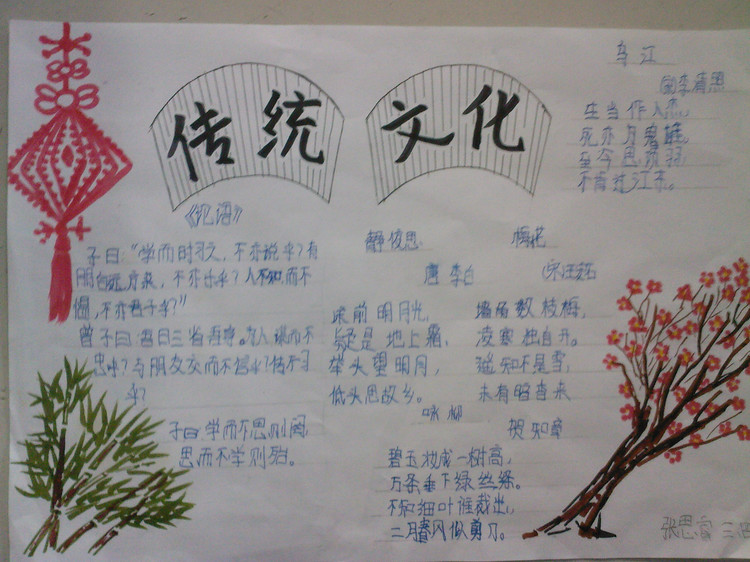 传统 文化
乌江
李清照
生当作人杰,
死亦为鬼雄,
至今思项羽,
不肯过江东。
《论语》
子曰:“学而时习之,不亦说乎?有
朋自远方来,不亦乐乎?人不知而不
愠,不亦君子乎?”
曾子曰:吾日三省吾身。为人谋而不
忠乎?与朋友交而不信乎?传不习
乎?
子曰:学而不思则罔,
思而不学则殆。
静夜思
唐 李白
床前明月光,
疑是地上霜,
举头望明月,
低头思故乡。
梅花
宋 王安石
墙角数枝梅,
凌寒独自开。
遥知不是雪,
未有暗香来
咏柳
贺知章
碧玉妆成一树高,
万条垂下绿丝绦。
不知细叶谁裁出,
二月春风似剪刀。
张思